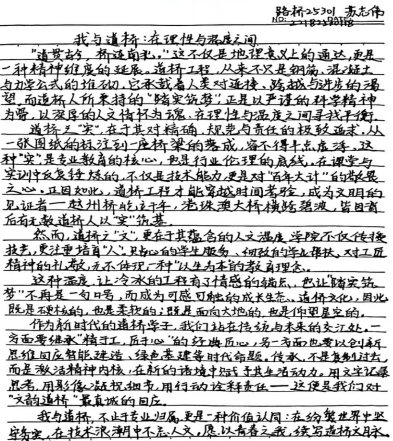 路桥25301
我与道桥:在理性与温度之间
“道贯古今,桥连南北。”这不仅是地理意义上的通达,更是
一种精神维度的延展。道桥工程,从来不只是钢筋、混凝土
与力学公式的堆砌,它承载着人类对连接、跨越与进步的渴
望。而道桥人所秉持的“踏实筑梦”,正是以严谨的科学精神
为骨,以深厚的人文情怀为魂,在理性与温度之间寻找平衡。
道桥之“实”,在于其对精确、规范与责任的极致追求,从
一张图纸的标注到一座桥梁的落成,容不得半点虚浮。这
种“实”是专业教育的核心,也是行业伦理的底线。在课堂与
实训中反复锤炼的,不仅是技术能力,更是对“百年大计”的敬畏
之心。正因如此,道桥工程才能穿越时间考验,成为文明的
见证者——赵州桥屹立千年,港珠澳大桥横跨碧波,皆因背
后有无数道桥人以“实”筑基。
然而,道桥之“文”,更在于其蕴含的人文温度。学院不仅传授
技艺,更注重培育“人”,贴心的学生服务、细致的学业帮扶、对工匠
精神的礼敬,无不体现一种“以生为本”的教育理念。
这种温度,让冷冰的工程有了情感的锚点,也让“踏实筑
梦”不再是一句口号,而成为可感可触的成长生态。道桥文化,因此
既是硬核的,也是柔软的;既是面向大地的,也是仰望星空的。
作为新时代的道桥学子,我们站在传统与未来的交汇处。一
方面要继承“精于工、匠于心”的经典匠心,另一方面也要以创新
思维回应智能建造、绿色基建等时代命题。传承,不是复制过去,
而是激活精神内核,在新的语境中赋予其生活动力。用文字记录
思考,用影像凝视细节,用行动诠释责任——这便是我们对
“文韵道桥”最真诚的回应。
我与道桥,不止于专业归属,更是一种价值认同:在纷繁世界中坚
守务实,在技术浪潮中不忘人文。愿以青春之我,续写道桥文脉